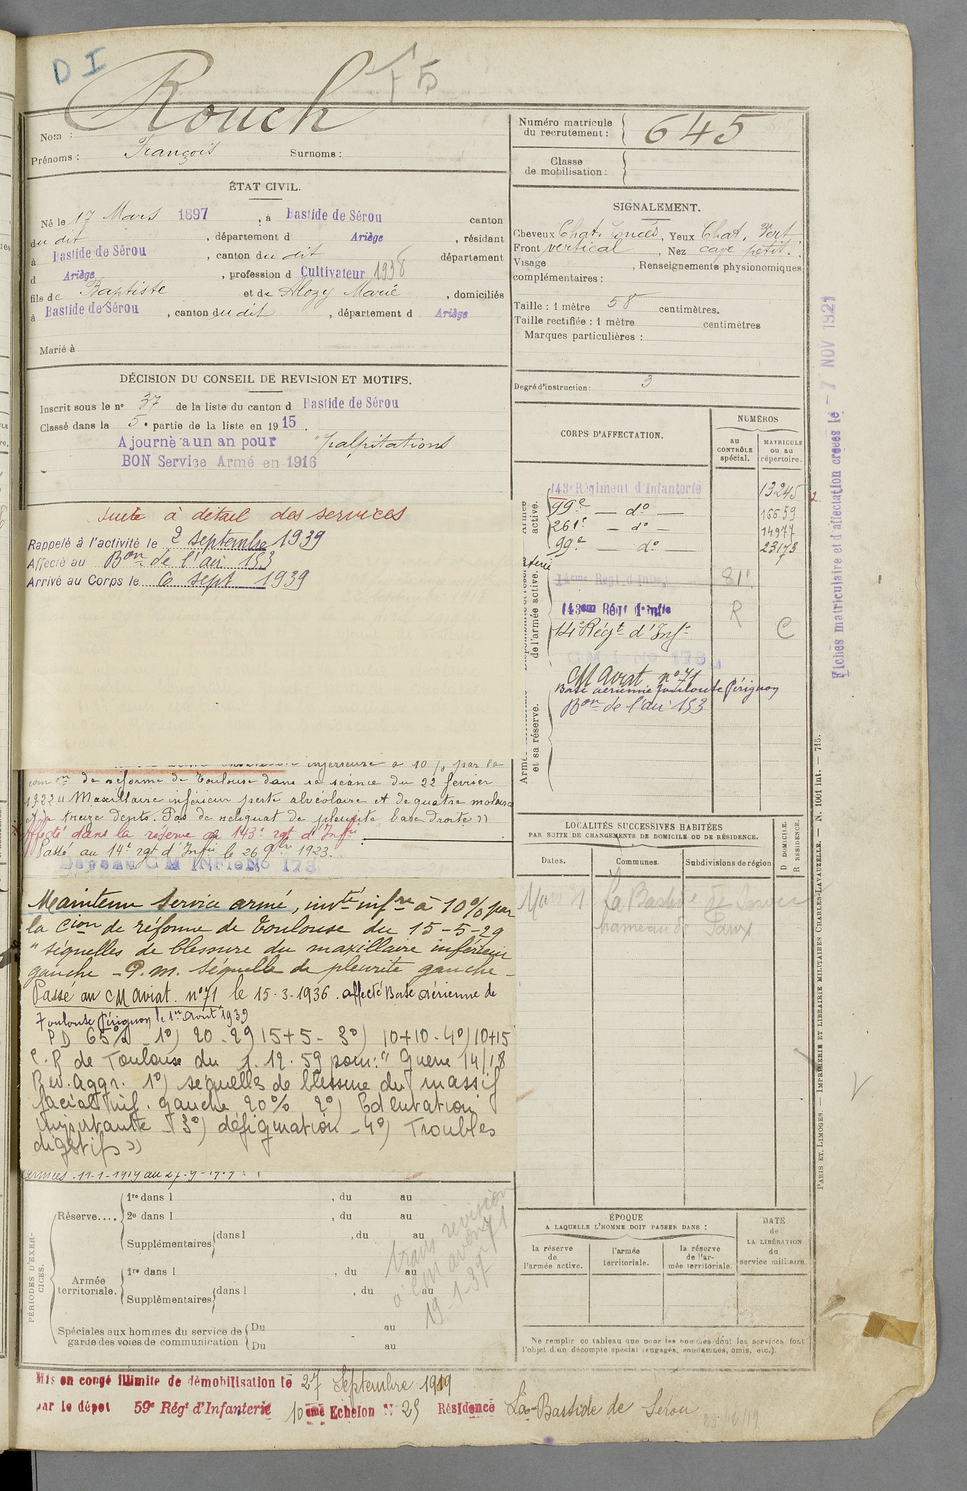 D I
Rouch
15
Nom :
Prénoms : François Surnoms :
Numéro matricule
du recrutement : 645
Classe
de mobilisation :
ÉTAT CIVIL.
Né le 17 Mars 1897, à Bastide de Sérou canton
du dit, département d Ariège, résidant
à Bastide de Sérou, canton du dit département
d Ariège, profession d Cultivateur
fils de Baptiste et de Alozy Marie, domiciliés
à Bastide de Sérou, canton du dit, département d Ariège
Marié à
SIGNALEMENT.
Cheveux Chat. foncés, Yeux Chat. Vert
Front vertical, Nez cave petit.
Visage , Renseignements physionomiques
complémentaires :
Taille : 1 mètre 58 centimètres.
Taille rectifiée : 1 mètre centimètres
Marques particulières :
Degré d'instruction : 3
DÉCISION DU CONSEIL DE REVISION ET MOTIFS.
Inscrit sous le n° 37 de la liste du canton d Bastide de Sérou
Classé dans la 5e partie de la liste en 1915.
Ajourné à un an pour palpitations
BON Service Armé en 1916
Suite à détail des services
Rappelé à l'activité le 2 septembre 1939
Affecté au Bon de l'air 153
Arrivé au Corps le 6 sept 1939
CORPS D'AFFECTATION.
NUMÉROS
au
CONTRÔLE
spécial.
MATRICULE
ou au
répertoire.
143e Régiment d'Infanterie 13245
99e — do — 16659
261e — do — 14977
99e — do — 23173
143eme Régt d'Inftie R
14e Régt d'Infie C
G M I No 173
CM Aviat n° 71
Base aérienne Toulouse Pérignon
Bon de l'air 153
Fiches matriculaire et d'affectation créées le - 7 NOV 1921
inférieure à 10 % par la
com on de réforme de Toulouse dans sa séance du 22 février
1922 « Maxillaire inférieur perte alvéolaire et de quatre molaires
Pas de reliquat de pleurite base droite »
Affecté dans la réserve au 143e rgt d'Infie
Passé au 14e rgt d'Infie le 26 9bre 1923.
Maintenu Service armé, invté infre à 10% par
la Cion de réforme de Toulouse du 15-5-29
" séquelles de blessure du maxillaire inférieur
gauche - P.m. séquelle de pleurite gauche -
Passé au CM Aviat. n° 71 le 15-3-1936. affecté Base Aérienne de
Toulouse Pérignon le 1er Août 1939
PD 65% - 1°) 20 - 2°) 15+5 - 3°) 10+10 - 4°) 10+15
C.R de Toulouse du 1.12.59 pour: « Guerre 14/18
Rev. Aggr. 1°) séquelles de blessure du massif
facial inf. gauche 20% 2°) Edentation
importante - 3°) défiguration - 4°) Troubles
digestifs »
LOCALITÉS SUCCESSIVES HABITÉES
PAR SUITE DE CHANGEMENTS DE DOMICILE OU DE RÉSIDENCE.
Dates. Communes. Subdivisions de région
D DOMICILE.
R RÉSIDENCE.
La Bastide de Serou
hameau de
PÉRIODES D'EXERCICES.
Réserve.... 1re dans l , du au
2e dans l , du au
Supplémentaires dans l , du au
Armée
territoriale. 1re dans l , du au
Supplémentaires dans l , du au
Spéciales aux hommes du service de Du au
garde des voies de communication Du au
trans revision
à CM avion 71
19-1-37
ÉPOQUE
A LAQUELLE L'HOMME DOIT PASSER DANS :
la réserve
de
l'armée active.
l'armée
territoriale.
la réserve
de l'armée territoriale.
DATE
de
LA LIBÉRATION
du
service militaire.
Ne remplir ce tableau que pour les hommes dont les services font
l'objet d'un décompte spécial (engagés, condamnés, omis, etc.).
PARIS ET LIMOGES. — IMPRIMERIE ET LIBRAIRIE MILITAIRES CHARLES-LAVAUZELLE. — N. 1001 int. — 715.
Mis en congé illimité de démobilisation le 27 Septembre 1919
par le dépôt 59e Régt d'Infanterie 10eme Echelon N° 25 Résidence La Bastide de Serou